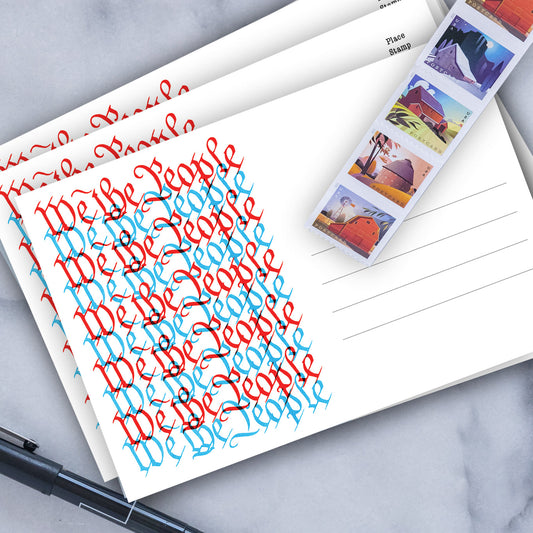 Stamp
Place
Stamp
We the People
We the People
We the People
We the People
We the People
We the People
We the People
We the People
We the People
We the People
We the People
We the People
POSTCARD